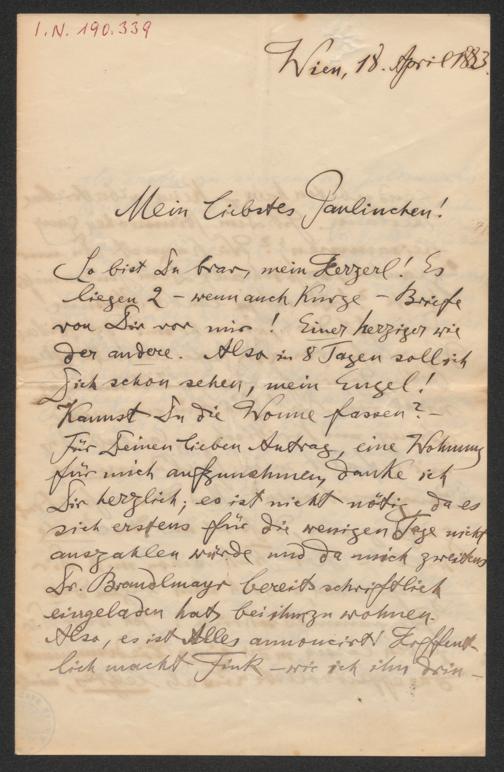 I.N. 190.339
Wien, 18. April 1883.
Mein liebstes Paulinchen!
So bist Du brav, mein Herzerl! Es
liegen 2 – wenn auch kurze – Briefe
von Dir vor mir! Einer herziger wie
der andere. Also in 8 Tagen soll ich
Dich schon sehen, mein Engel!
Kannst Du die Wonne fassen? –
Für Deinen lieben Antrag, eine Wohnung
für mich aufzunehmen, danke ich
Dir herzlich; es ist nicht nötig, da es
sich erstens für die wenigen Tage nicht
auszahlen würde und da mich zweitens
Dr. Brandlmayr bereits schriftlich
eingeladen hat, bei ihm zu wohnen.
Also, es ist Alles annoncirt! Hoffent-
lich macht Fink – wie ich ihn drin-